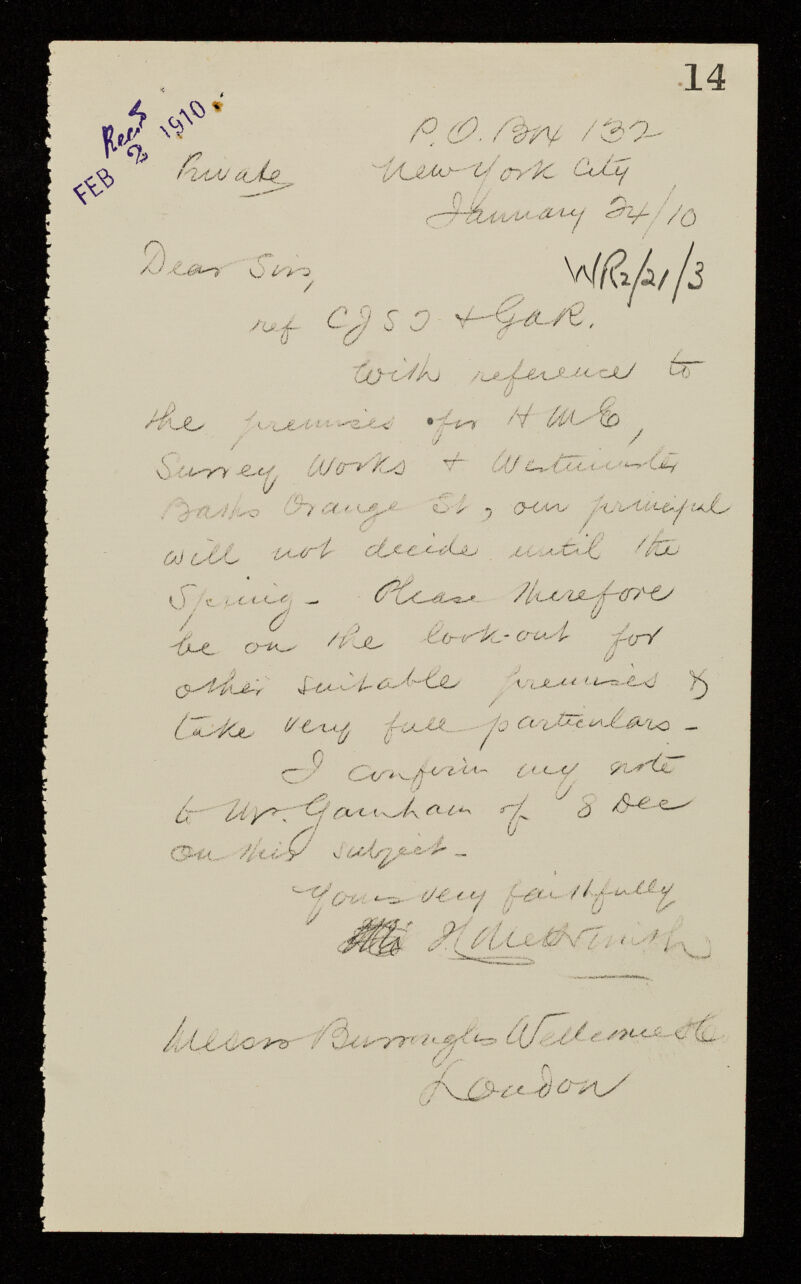 14
Recd
FEB 2 1910
P.O. Box 132
Private New York City
January 24/10
Dear Sirs,
WR2/21/3
ref CJSJ + GaR.
With reference to
the premises for HME,
Surrey Works + Westminster
Baths Orange St, our principal
will not decide until the
Spring - Please therefore
be on the look-out for
other suitable premises &
take very full particulars -
I confirm my note
to Mr. Garnham of 8 Dec
on this subject -
Yours very faithfully
Smith
Messrs Burroughs Wellcome & Co
London